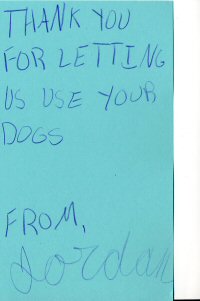 THANK YOU
FOR LETTING
US USE YOUR
DOGS
FROM,
Jordan